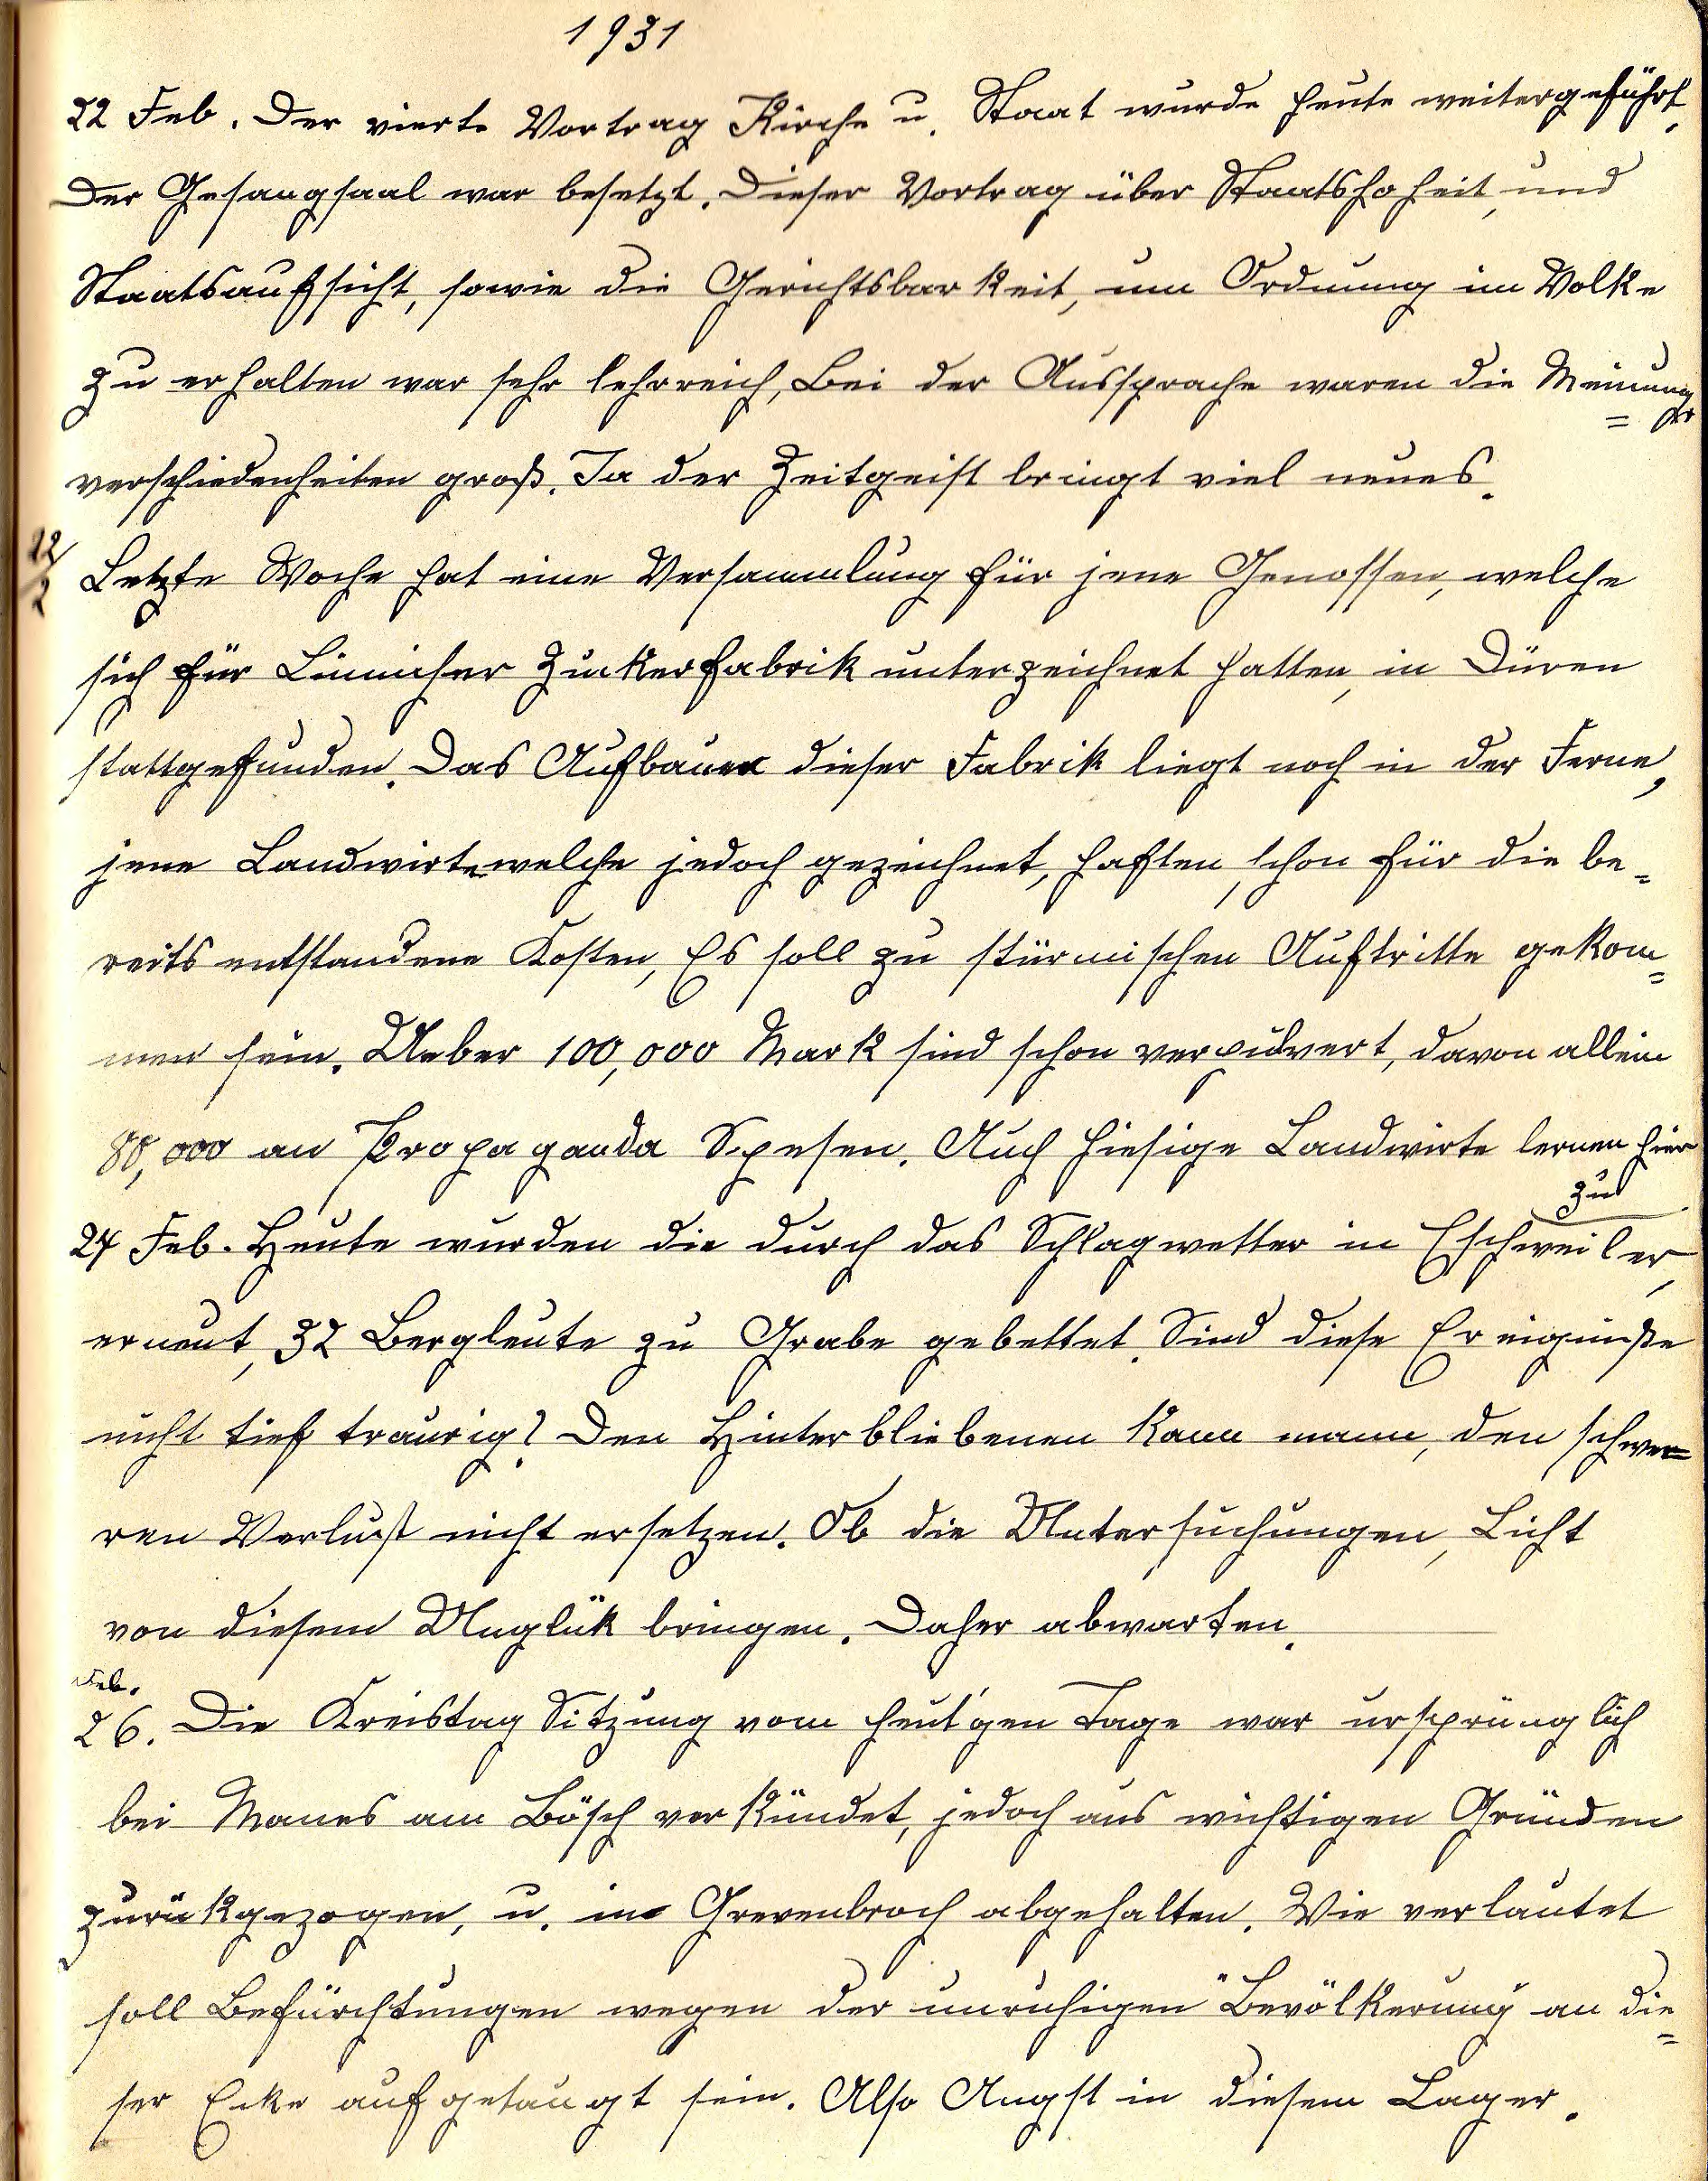 1931
22 Feb. Der vierte Vortrag Kirche u. Staat wurde heute weitergeführt.
Der Gesangsaal war besetzt. Dieser Vortrag über Staatshoheit, und
Staatsaufsicht, sowie die Gerichtsbarkeit, um Ordnung im Volke
zu erhalten war sehr lehrreich, Bei der Aussprache waren die Meinungs=
verschiedenheiten groß. Ja der Zeitgeist bringt viel neues.
22/2 Letzte Woche hat eine Versammlung für jene Genossen, welche
sich für Linnicher Zuckerfabrik unterzeichnet hatten, in Düren
stattgefunden. Das Aufbauen dieser Fabrik liegt noch in der Ferne,
jene Landwirte welche jedoch gezeichnet, haften schon für die be=
reits entstandene Kosten, Es soll zu stürmischen Auftritte gekom=
men sein. Ueber 100,000 Mark sind schon verpulvert, davon allein
80,000 an Propaganda Spesen. Auch hiesige Landwirte lernen hier
zu
24 Feb. Heute wurden die durch das Schlagwetter in Eschweiler,
erneut, 32 Bergleute zu Grabe gebettet. Sind diese Ereigniße
nicht tief traurig? Den Hinterbliebenen kann mann, den schwe=
ren Verlust nicht ersetzen. Ob die Untersuchungen, Licht
von diesem Unglük bringen. Daher abwarten.
Feb.
26. Die Kreistag Sitzung vom heut'gen Tage war ursprünglich
bei Manes am Bösch verkündet, jedoch aus wichtigen Gründen
zurükgezogen, u. in Grevenbroch abgehalten. Wie verlautet
soll Befürchtungen wegen der unruhigen "Bevölkerung an die=
ser Ecke aufgetaugt sein. Also Angst in diesem Lager.